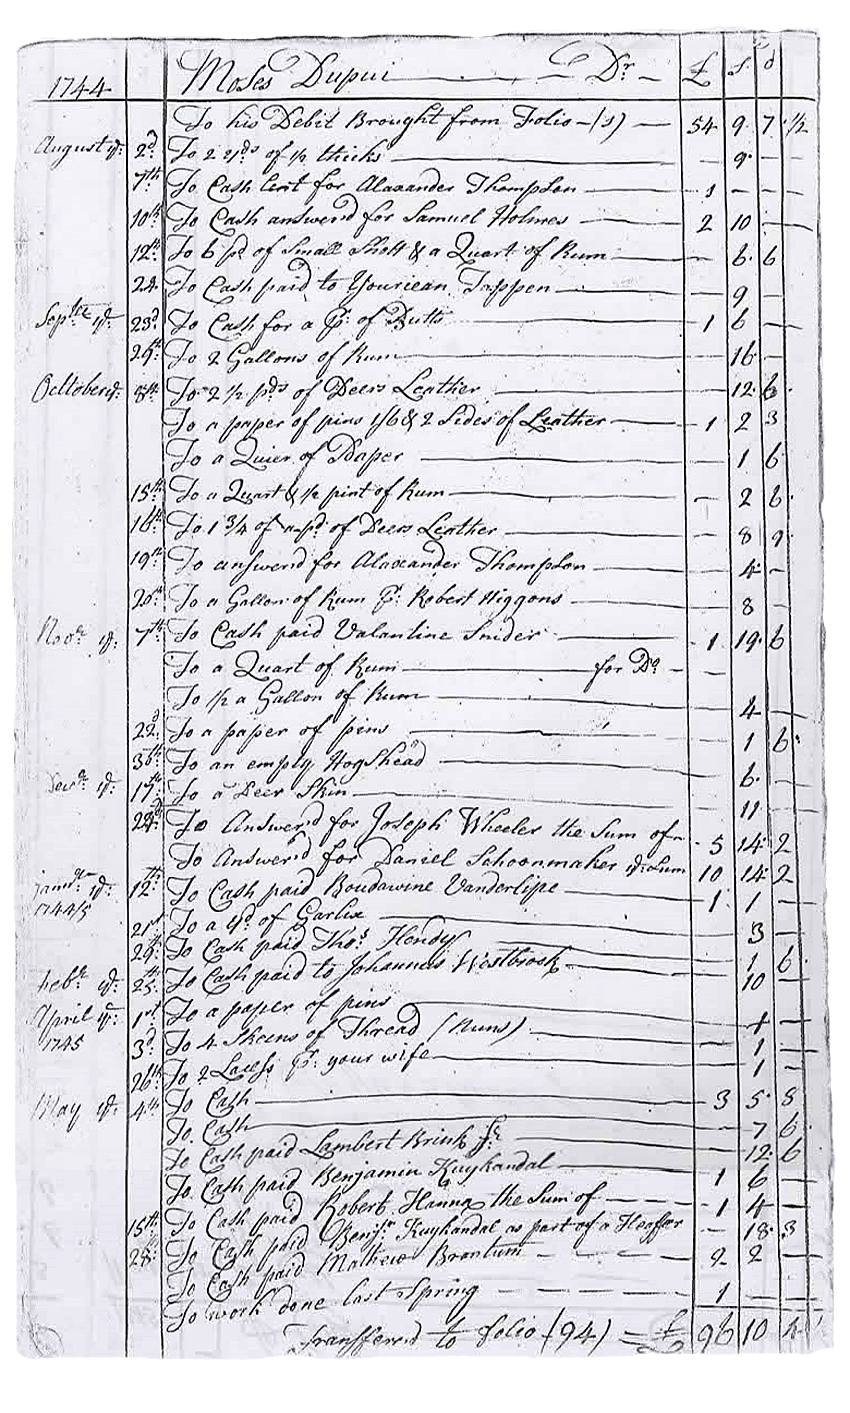 1744 Moses Dupui — — Dr — £ s d
To his Debit Brought from Folio — (s) — 54 9 7 ½
August ye 2d To 2 yds of ½ thicks — 9
7th To Cash lent for Alaxander Thompson — 1 —
10th To Cash answerd for Samuel Holmes — 2 10 —
12th To 6 pd of Small Shott & a Quart of Rum — 6 6
22 To Cash paid to Youriean Tappen — 9 —
Septer ye 23d To Cash for a Pr of Butts — 1 6 —
29th To 2 Gallons of Rum — 16 —
Octtober ye 8th To 2 ½ pds of Deers Leather — 12 6
To a paper of pins 1/6 & 2 Sides of Leather — 1 2 3
To a Quier of Paper — 1 6
15th To a Quart & ½ pint of Rum — 2 6
16th To 1 ¾ of a pd of Deers Leather — 8 9
19th To answerd for Alaxander Thompson — 4 —
20th To a Gallon of Rum Pr Robert Higgons — 8 —
Novr ye 7th To Cash paid Valantine Snider — 1 19 6
To a Quart of Rum — for Do — —
To ½ a Gallon of Rum — 4 —
22d To a paper of pins — 1 6
30th To an empty HogShead — 6 —
Decr ye 17th To a Deer Skin — 11 —
22d To Answerd for Joseph Wheeler the Sum of — 5 14 2
To Answerd for Daniel Schoonmaker ye Sum 10 14 2
ye 12th To Cash paid Boudawine Vanderlipe — 1 1 —
1744/5
21st To a yd of Garlix — 3 —
29th To Cash paid Thos Hendy — 1 6
Febr ye 25th To Cash paid to Johannas Westbrook — 10 —
April ye 1st To a paper of pins — 1 —
1745 3d To 4 Skeens of Thread (Nuns) — 1 —
26th To 2 Lacess Pr your wife — 1 —
May ye 4th To Cash — 3 5 8
To Cash — 7 6
To Cash paid Lambert Brink Jr — 12 6
To Cash paid Benjamin Kuykandal — 1 6 —
To Cash paid Robert Hanna the Sum of — 1 4 —
15th To Cash paid Benjn Kuykandal as part of a Heaffer — 18 3
28th To Cash paid Mathew Brantum — 2 2 —
To work done last Spring — 1 —
Transfferd to folio (94) = £ 96 10